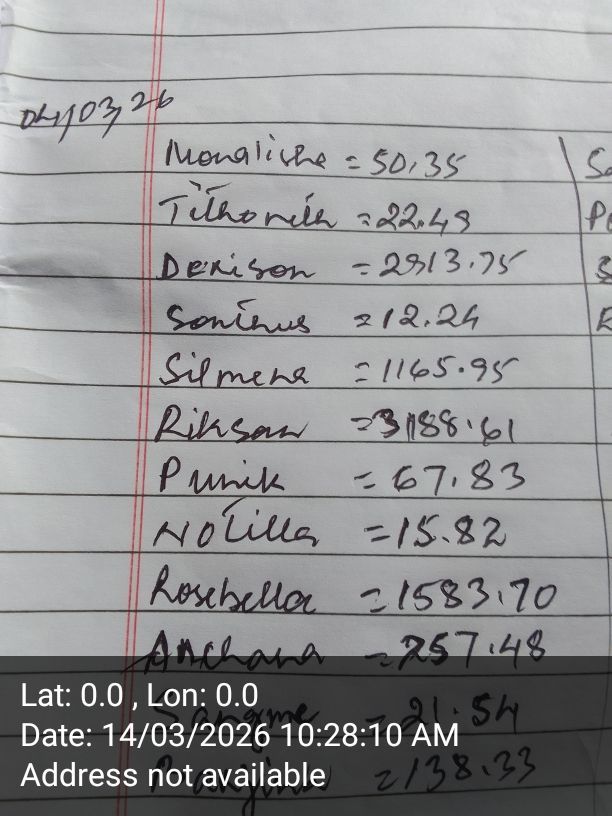 04/03/26
Monalisha = 50.35
Tithonila = 22.49
Denison = 2913.75
Sontinus = 12.24
Silmena = 1165.95
Riksan = 3188.61
Punik = 67.83
Notilla = 15.82
Rosebella = 1583.70
Anchana = 257.48
Sangme = 21.54
= 138.33
Lat: 0.0 , Lon: 0.0
Date: 14/03/2026 10:28:10 AM
Address not available